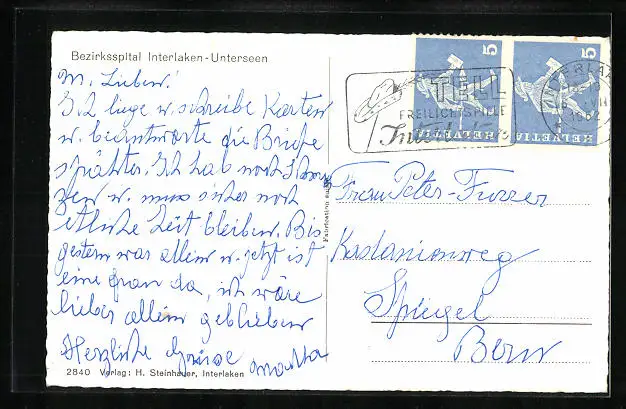 Bezirksspital Interlaken-Unterseen
M. Lieben!
Z.Z. liege u. schreibe Karten
u. beantworte die Briefe
später. Ich hab noch Schmer
zen u. muss sicher noch
etliche Zeit bleiben. Bis
gestern war allein u. jetzt ist
eine Frau da, ich wäre
lieber allein geblieben
Herzliche Grüsse Martha
2840 Verlag: H. Steinhauer, Interlaken
Fabrication
TELL
FREILICHTSPIELE
Interlaken
INTERLAKEN
5
HELVETIA
5
HELVETIA
Frau Peter-Furrer
Kastanienweg
Spiegel
Bern